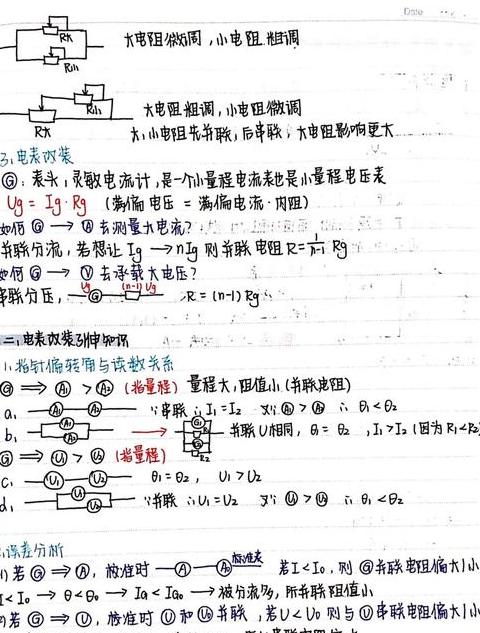 Date
R大
R小
大电阻微调,小电阻粗调
R大
R小
大电阻粗调,小电阻微调
大,小电阻先并联,后串联,大电阻影响更大
3,电表改装
Ⓖ:表头,灵敏电流计,是一个小量程电流表也是小量程电压表
Ug = Ig·Rg (满偏电压 = 满偏电流·内阻)
如何 Ⓖ → Ⓐ 去测量大电流?
并联分流,若想让 Ig → nIg 则并联电阻 R = 1/(n-1) Rg
如何 Ⓖ → Ⓥ 去承载大电压?
串联分压, Ug G (n-1)Ug R = (n-1) Rg
二,电表改装引申知识
1,指针偏转角与读数关系
Ⓖ ⇒ A₁ > A₂ (指量程) 量程大,阻值小(并联电阻)
a, A₁ A₂ ∵串联 ∴I₁=I₂ 又∵ A₁ > A₂ ∴ θ₁<θ₂
b, A₁ A₂ → G₁ R₂ 并联U相同, θ₁ = θ₂ , I₁>I₂ (因为R₁<R₂)
Ⓖ ⇒ U₁ > U₂ (指量程)
c, U₁ U₂ θ₁=θ₂, U₁>U₂
d, U₁ U₂ ∵并联 ∴U₁=U₂ 又∵ U₁ > U₂ ∴ θ₁<θ₂
误差分析
1) 若 Ⓖ ⇒ Ⓐ, 校准时 A A₀ 标准表 若I<I₀, 则 Ⓖ并联电阻偏大|小
I<I₀ → θ<θ₀ → Ig<Ig₀ → 被分流多,所并联阻值小
若 Ⓖ ⇒ Ⓥ, 校准时 Ⓤ和U₀并联,若U<U₀ 则与Ⓤ串联电阻偏大|小